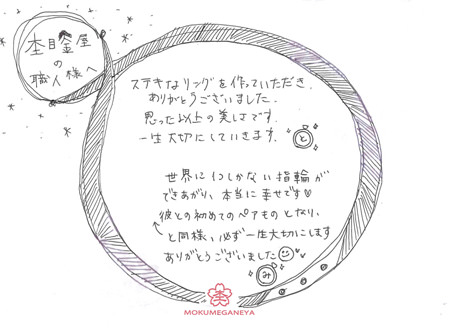 杢目金屋
の
職人様へ
ステキなリングを作っていただき、
ありがとうございました。
思った以上の美しさです。
一生大切にしていきます。
と
世界に1つしかない指輪が
できあがり、本当に幸せです♡
彼との初めてのペアものとなり、
と同様、必ず一生大切にします
ありがとうございました
み
MOKUMEGANEYA